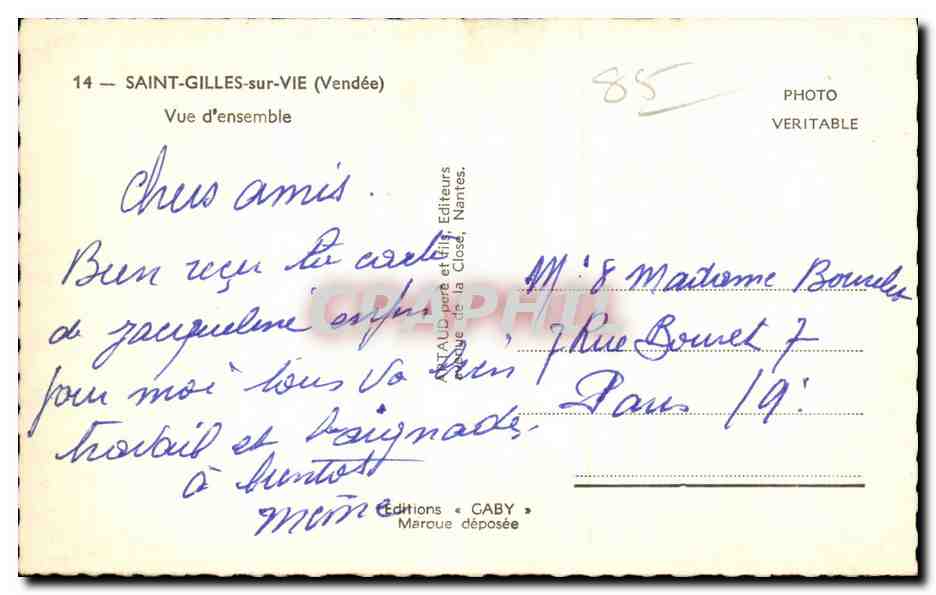 14 — SAINT-GILLES-sur-VIE (Vendée)
Vue d'ensemble
85
PHOTO
VERITABLE
Chers amis.
Bien reçu la carte
de Jacqueline enfin
pour moi tous va bien
travail et baignades,
à bientot
ARTAUD père et fils, Editeurs
Avenue de la Close, Nantes.
CPAPHIL
Mr & Madame
7 Rue Bouret 7
Paris 19
Editions « GABY »
Marque déposée